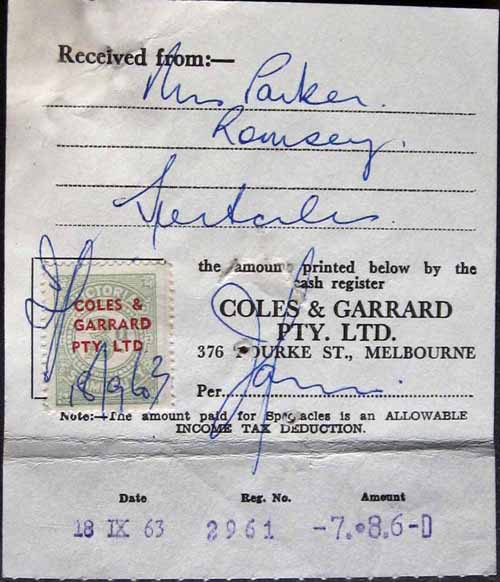 Received from:—
Mrs Parker.
Romsey.
Spectacles
the amount printed below by the
cash register
COLES & GARRARD
PTY. LTD.
376 BOURKE ST., MELBOURNE
Per
VICTORIA
COLES &
GARRARD
PTY. LTD
18/9/63
Note:—The amount paid for Spectacles is an ALLOWABLE
INCOME TAX DEDUCTION.
Date Reg. No. Amount
18 IX 63 2961 -7.•8.6-D